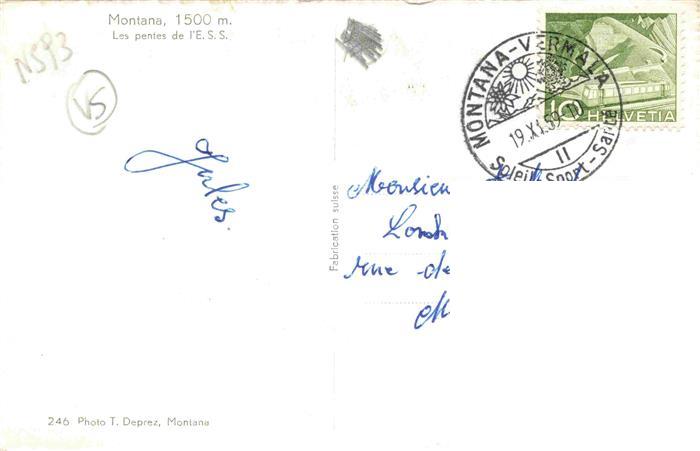 Montana, 1500 m.
Les pentes de l'E. S. S.
N593
VS
Jules.
Fabrication suisse
Monsieu
rue de
M
246 Photo T. Deprez, Montana
MONTANA-VERMALA
19.XI.59-10
II
Soleil-Sport-Santé
10 HELVETIA